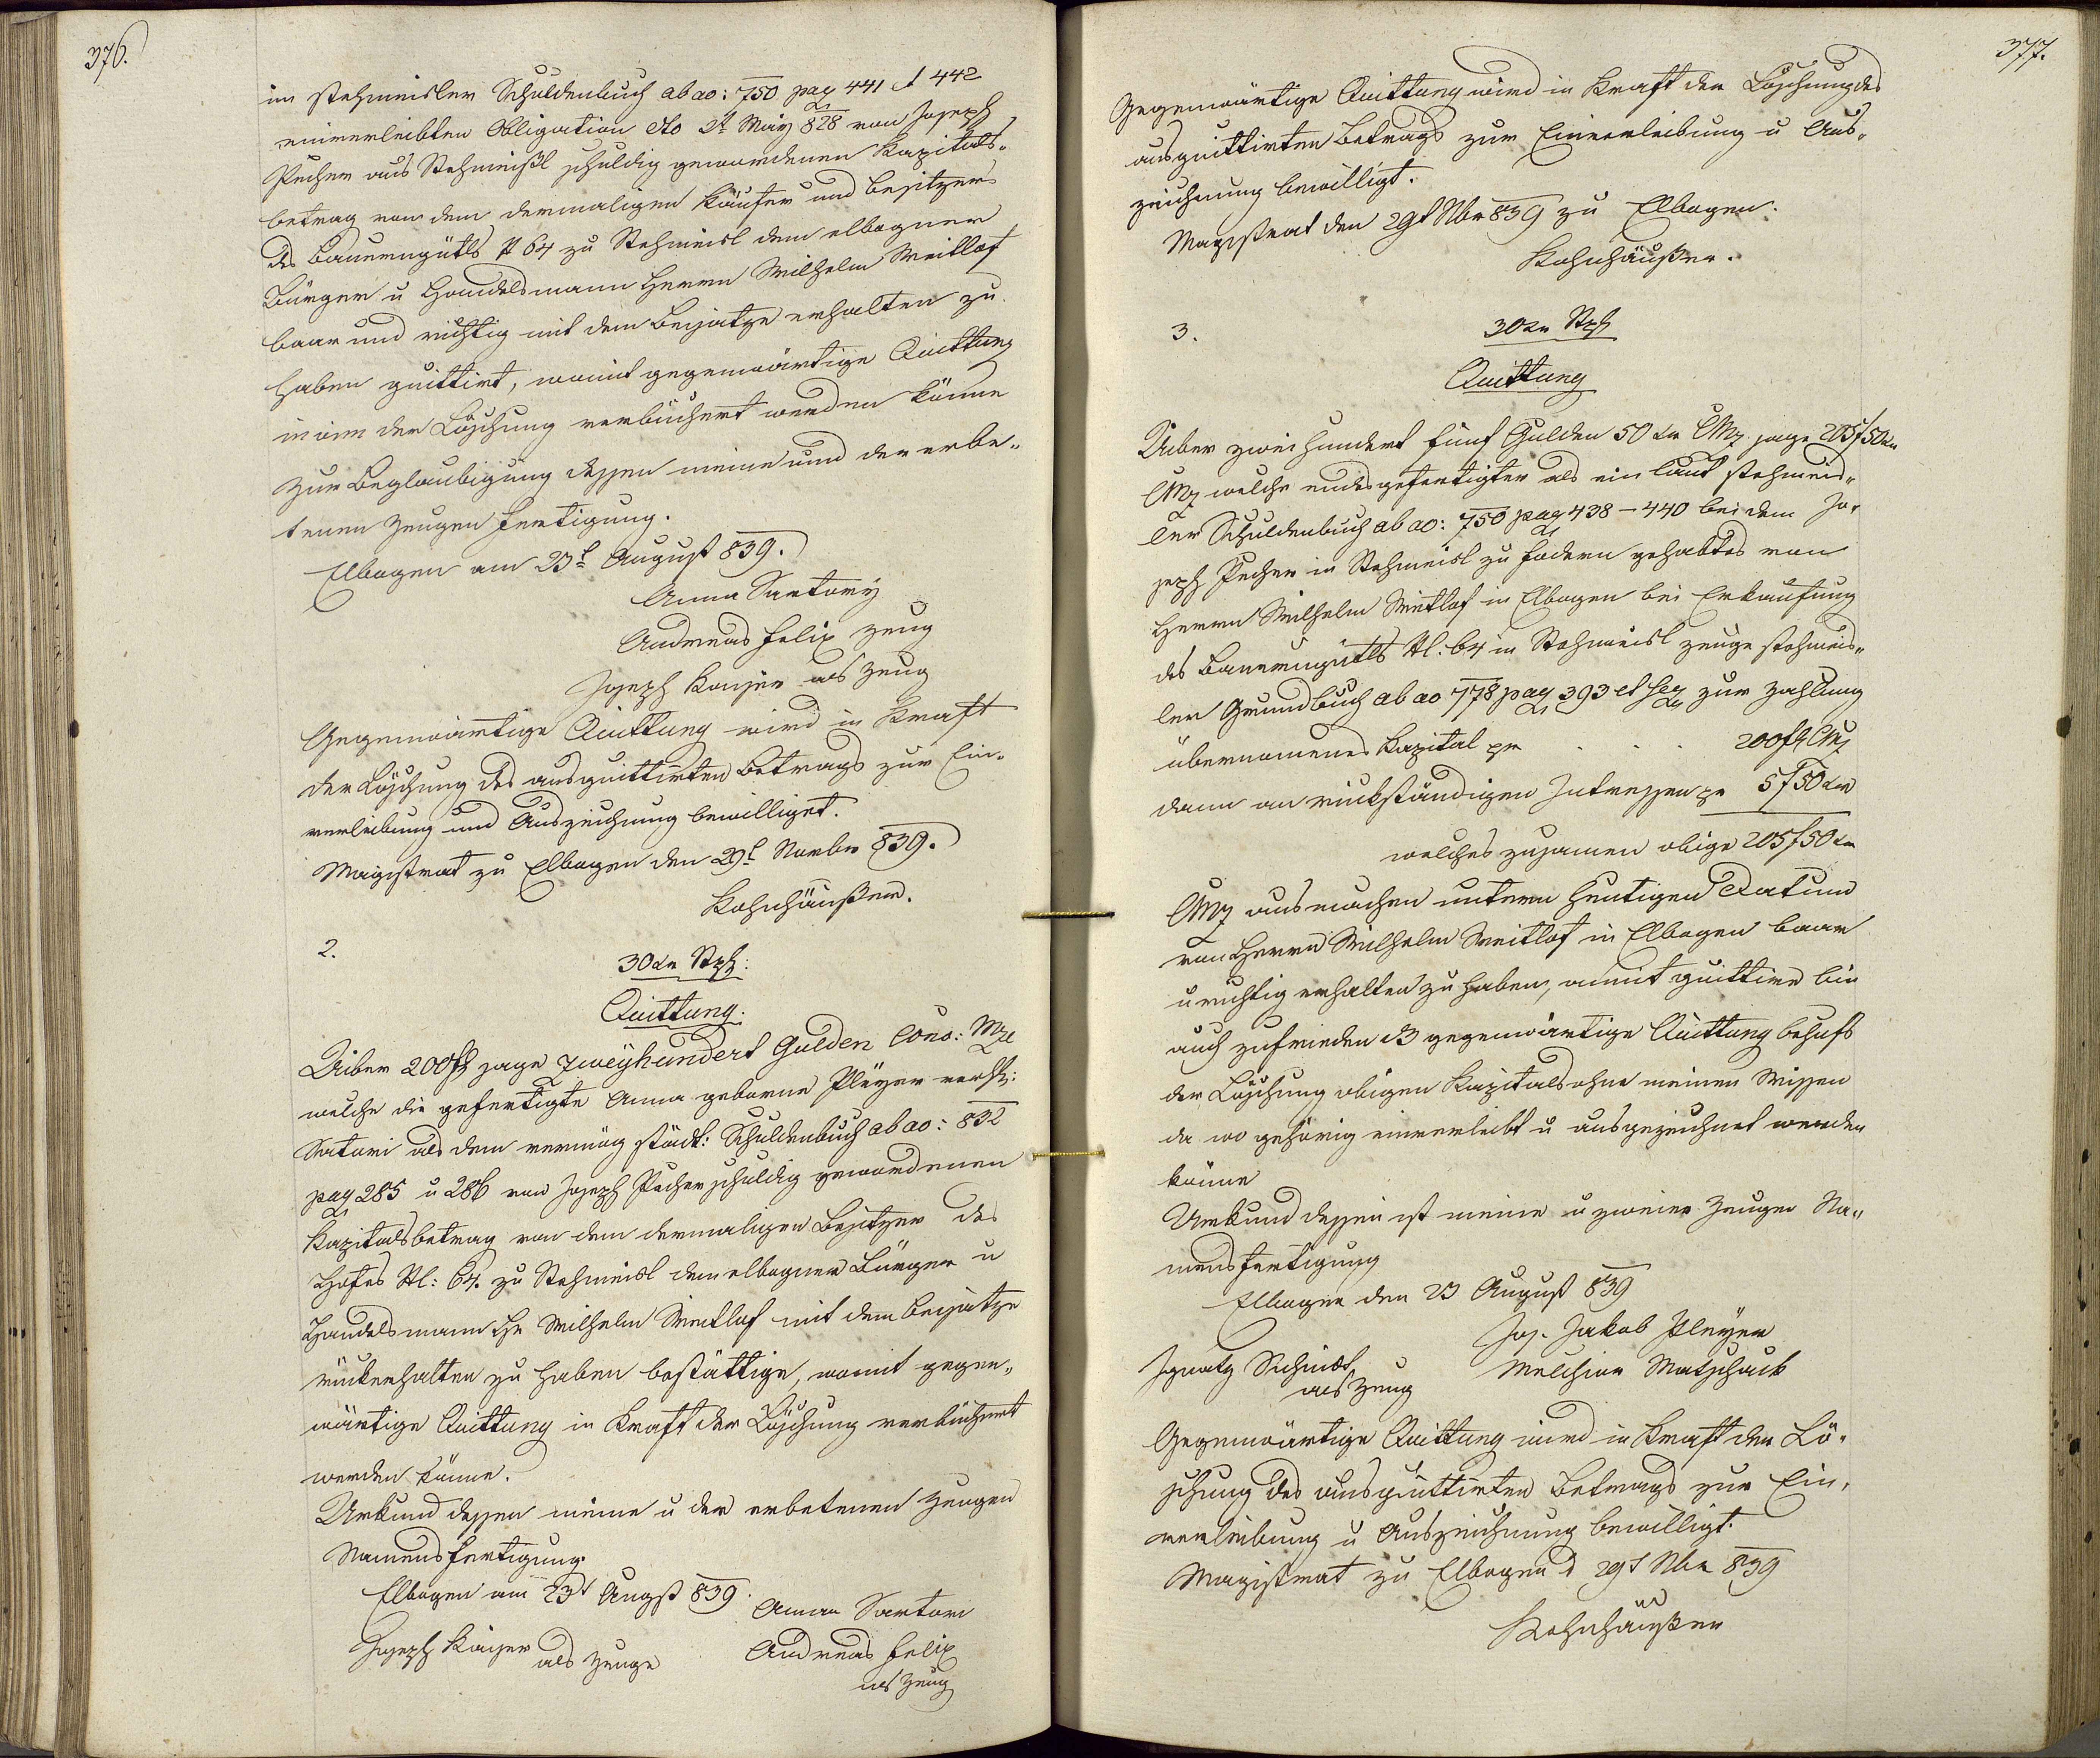 376.
im stehmeisler Schuldenbuch ab ao: 750 pag 441 et 442
einverleibten Obligation dto 2t May 828 von Joseph
Pecher aus Stehmeißl schuldig gewordenen Kapitals-
betrag von dem dermaligen Käufer und Besitzer
des Bauernguthls N 64 zu Stehmeisl dem elbogner
Bürger u Handelsmann Herrn Wilhelm Weitlof
baar und richtig mit dem Beisatze erhalten zu
haben quittirt, womit gegenwärtige Quittung
in vim der Löschung verbüchert werden könne
Zur Beglaubigung dessen meine und der erbe-
tenen Zeugen Fertigung.
Elbogen am 23t August 839.
Anna Sartory
Andreas Felix Zeug
Joseph Kaiser als Zeug
Gegenwärtige Quittung wird in Kraft
der Löschung des ausquittirten Betrags zur Ein-
verleibung und Auszeichnung bewilliget.
Magistrat zu Elbogen den 29t Novbr 839.
Kohnhäußer.
2.
30 kr Stpl:
Quittung.
Uiber 200 f sage Zweyhundert Gulden Conv: Mze
welche die gefertigte Anna geborne Pleyer verehl:
Satori als dem vermög städt: Schuldenbuch ab ao: 832
pag 285 u 286 von Joseph Pecher schuldig gewordenen
Kapitalsbetrag von dem dermaligen Besitzer des
Hofes N: 64. zu Stehmeisl dem elbogner Bürger u
Handelsmann H Wilhelm Weitlof mit dem Beisatze
rückerhalten zu haben bestättige, womit gegen-
wärtige Quittung in Kraft der Löschung verbüchert
werden könne.
Urkund dessen meine u der erbetenen Zeugen
Namensfertigung.
Elbogen am 23t Augst 839.
Anna Sartori
Joseph Kaiser
als Zeuge
Andreas Felix
als Zeug
377.
Gegenwärtige Quittung wird in Kraft der Löschung des
ausquittirten Betrags zur Einverleibung u Aus-
zeichnung bewilligt.
Magistrat den 29t Nbr 839 zu Elbogen.
Kohnhäußer.
3.
30 kr Stpl
Quittung
Uiber zweihundert fünf Gulden 50 kr CMz sage 205 f 50 kr
CMz welche endesgefertigter als ein laut stehmeis-
ler Schuldenbuch ab ao: 750 pag 438 - 440 bei dem Jo-
seph Pecher in Stehmeisl zu fodern gehabtes von
Herrn Wilhelm Weitlof in Elbogen bei Erkaufung
des Bauernguthls N: 64 in Stehmeisl zeuge stehmeis-
ler Grundbuch ab ao 778 pag 393 et seq zur Zahlung
übernomenes Kapital pr . . . 200 f CMz
dann an rückständigen Intressen pr 5 f 50 kr
welches zusamen obige 205 f 50 kr
CMz ausmachen unterm heutigen Datum
von Herrn Wilhelm Weitlof in Elbogen baar
u richtig erhalten zu haben, womit quittire bin
auch zufrieden daß gegenwärtige Quittung behufs
der Löschung obigen Kapitals ohne meinen Wissen
da wo gehörig einverleibt u ausgezeichnet werden
könne
Urkund dessen ist meine u zweier Zeugen Na-
mensfertigung
Elbogen den 23 August 839
Jos. Jakob Pleyer
Ignatz Schmidt
als Zeug
Melchior Matschack
Gegenwärtige Quittung wird in Kraft der Lö-
schung des ausquittirten Betrags zur Ein-
verleibung u Auszeichnung bewilligt.
Magistrat zu Elbogen d 29t Nbr 839
Kohnhäußer